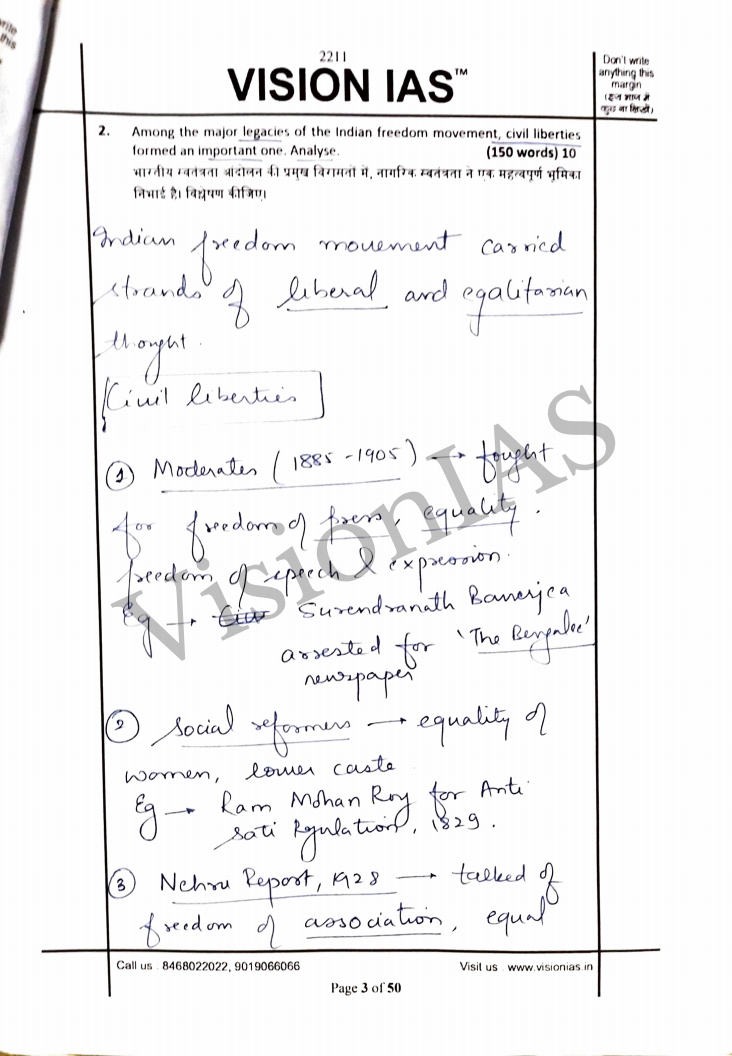 2211
VISION IAS™
Don't write
anything this
margin
(इस भाग में
कुछ ना लिखें)
2. Among the major legacies of the Indian freedom movement, civil liberties
formed an important one. Analyse. (150 words) 10
भारतीय स्वतंत्रता आंदोलन की प्रमुख विरासतों में, नागरिक स्वतंत्रता ने एक महत्वपूर्ण भूमिका
निभाई है। विश्लेषण कीजिए।
Indian freedom movement carried
strands of liberal and egalitarian
thought.
Civil liberties
1 Moderates (1885-1905) → fought
for freedom of press, equality.
freedom of speech & expression.
Eg → Surendranath Banerjea
arrested for 'The Bengalee'
newspaper
2 Social reformers → equality of
women, lower caste
Eg → Ram Mohan Roy for Anti
Sati Rgulation, 1829.
3 Nehru Report, 1928 → talked of
freedom of association, equal
VisionIAS
Call us : 8468022022, 9019066066 Visit us : www.visionias.in
Page 3 of 50